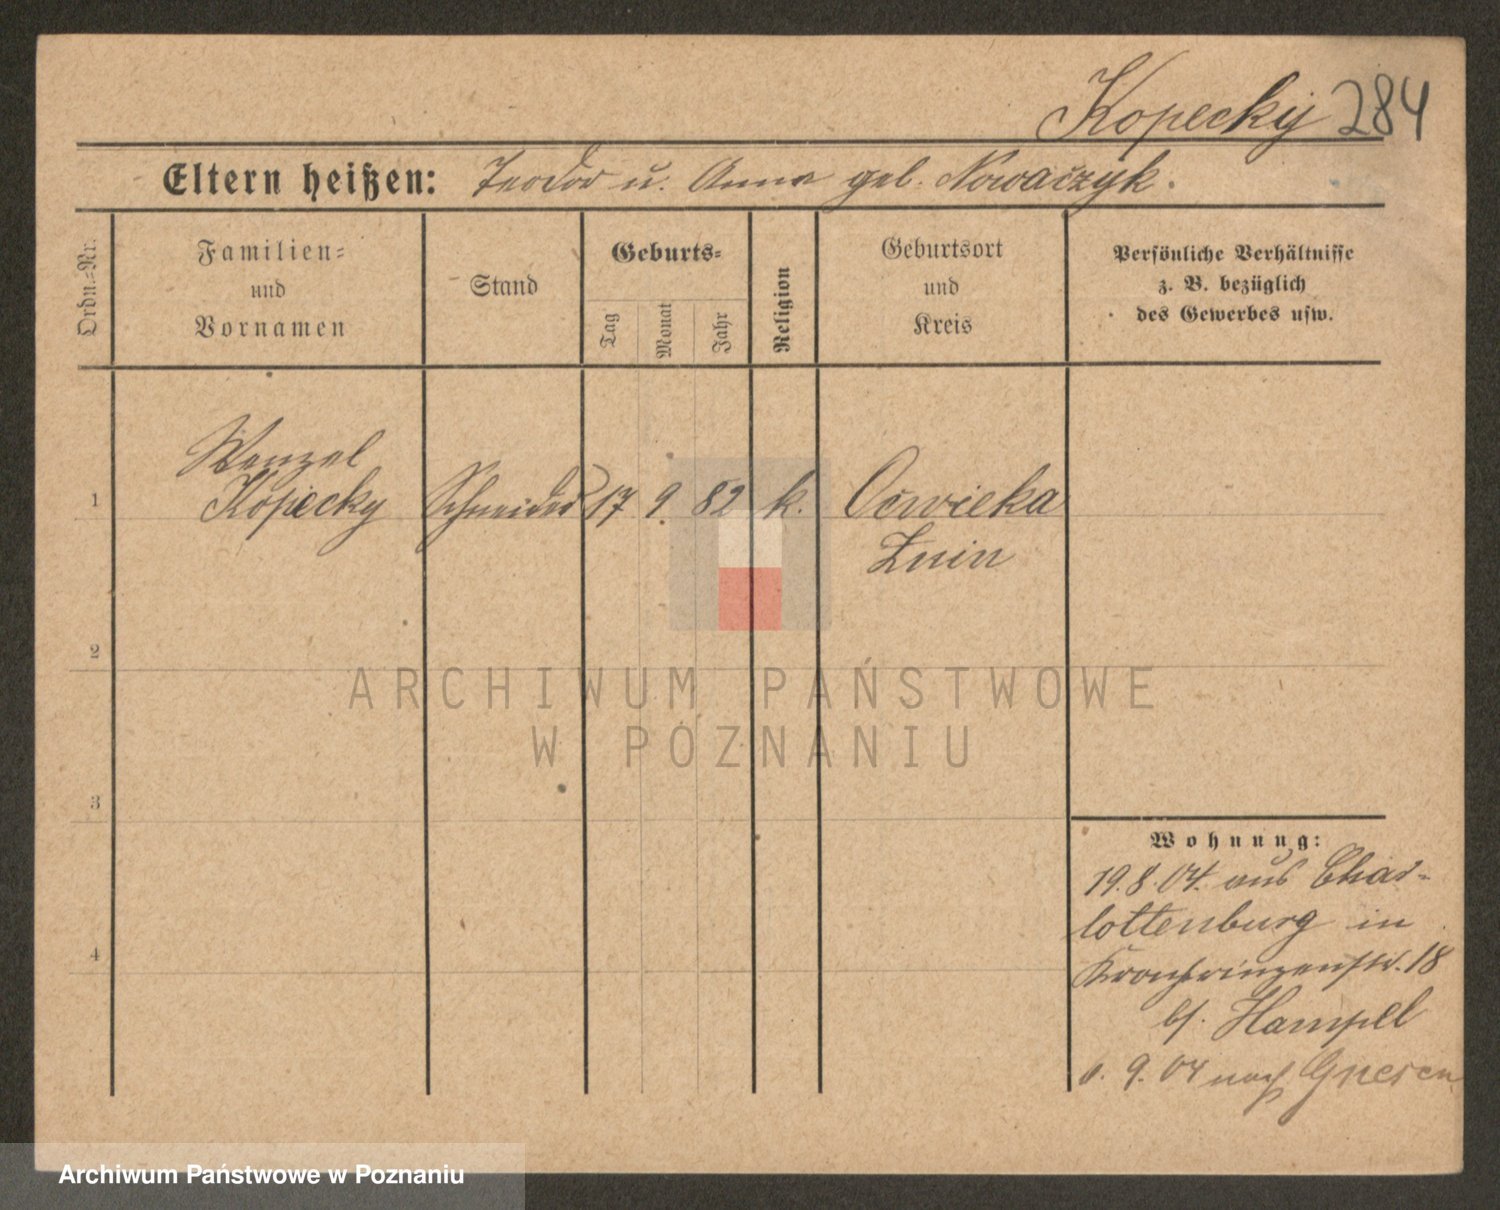 Kopecky 284
Eltern heißen: Teodor u. Anna geb. Nowaczyk.
Ordn.-Nr.
Familien-
und
Vornamen
Stand
Geburts-
Tag
Monat
Jahr
Religion
Geburtsort
und
Kreis
Persönliche Verhältnisse
z. B. bezüglich
des Gewerbes usw.
Wenzel
1 Kopecky Schneider 17 9 82 k. Ocwieka
Znin
2
3
4
Wohnung:
19.8.04. aus Char-
lottenburg in
Kronprinzenstr. 18
bf. Hampel
9. 04 nach Gnesen
ARCHIWUM PAŃSTWOWE
W POZNANIU
Archiwum Państwowe w Poznaniu